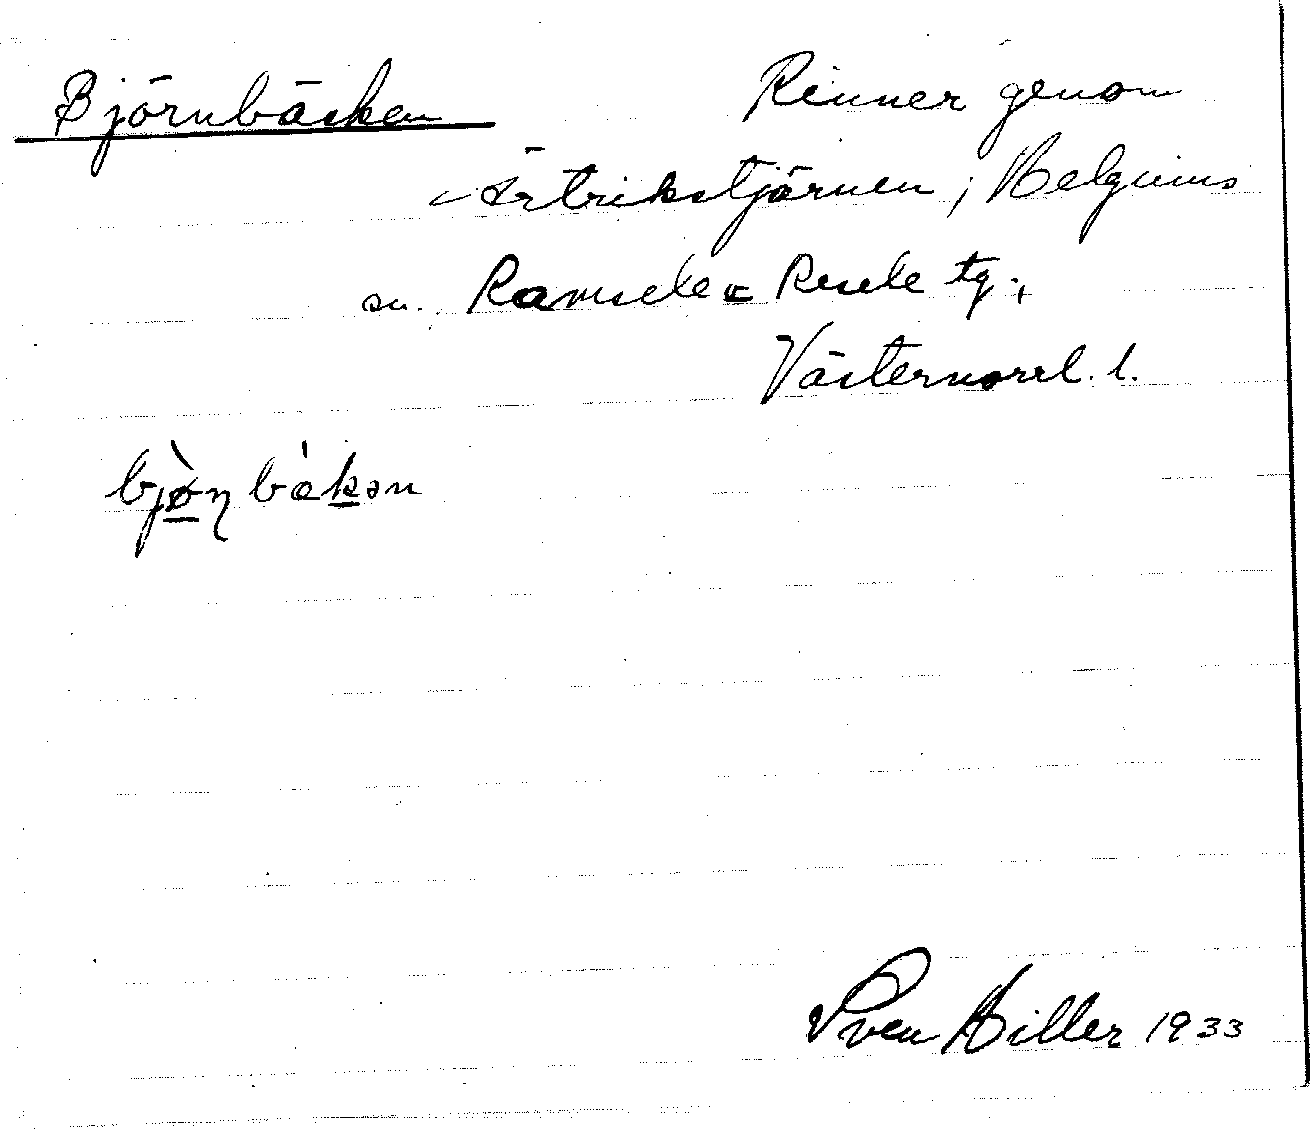 Björnbäcken Rinner genom
Ärtrikstjärnen, Helgums
sn. Ramsele o Resele tg.,
Västernorrl. l.
bjøn bäkən
Sven Hiller 1933